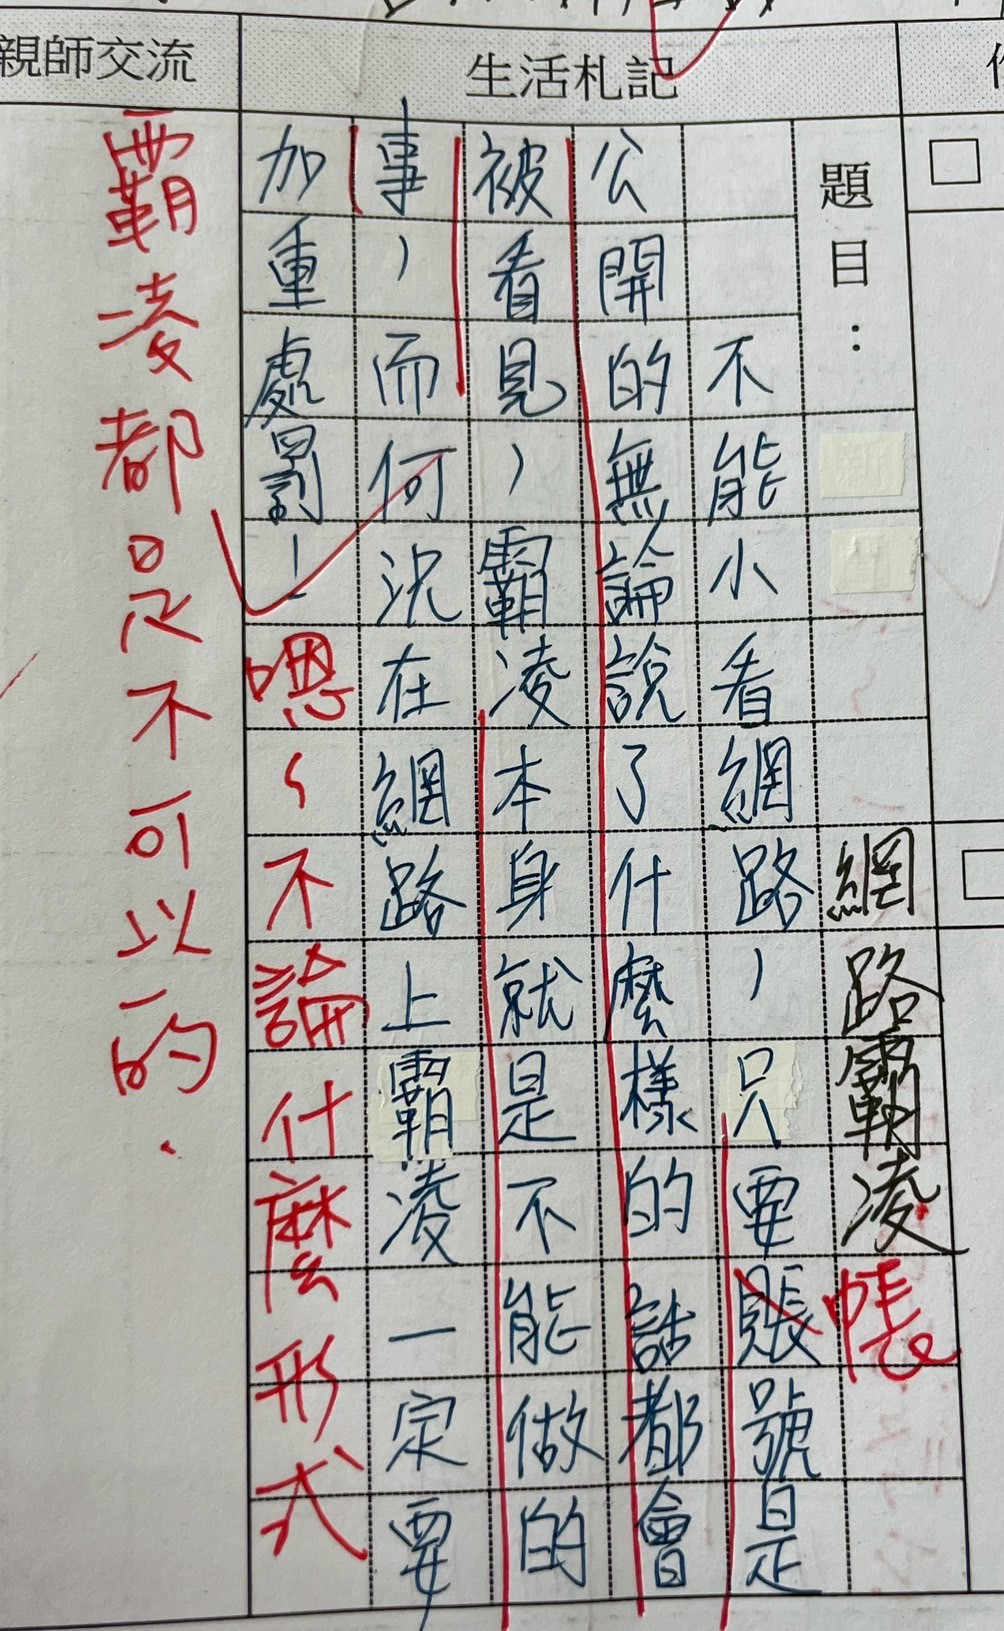 生活札記
親師交流
題目：網路霸凌
不能小看網路，只要賬號是
帳
公開的無論說了什麼樣的話都會
被看見，霸凌本身就是不能做的
事，而何況在網路上霸凌一定要
加重處罰！
嗯～不論什麼形式
霸凌都是不可以的.